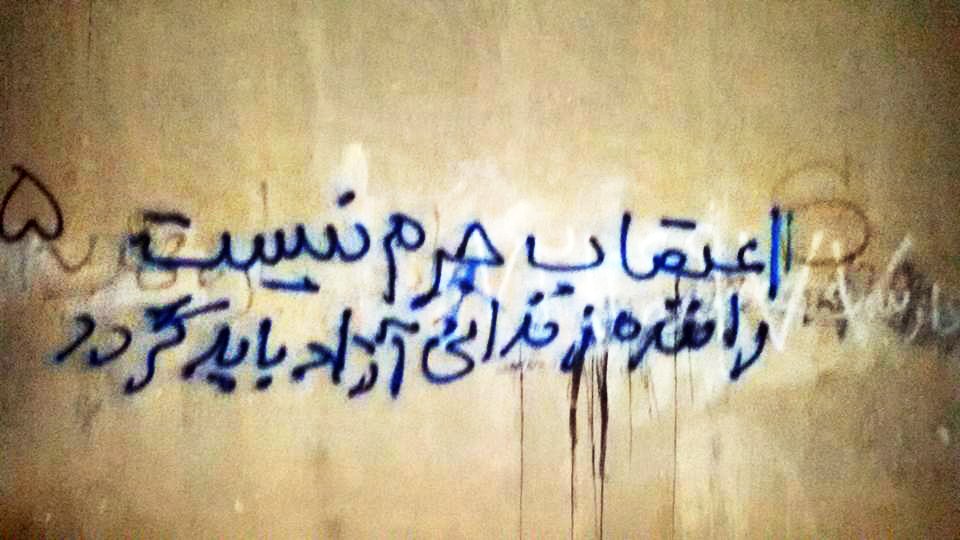 اعتصاب جرم نیست
راننده زندانی آزاد باید گردد